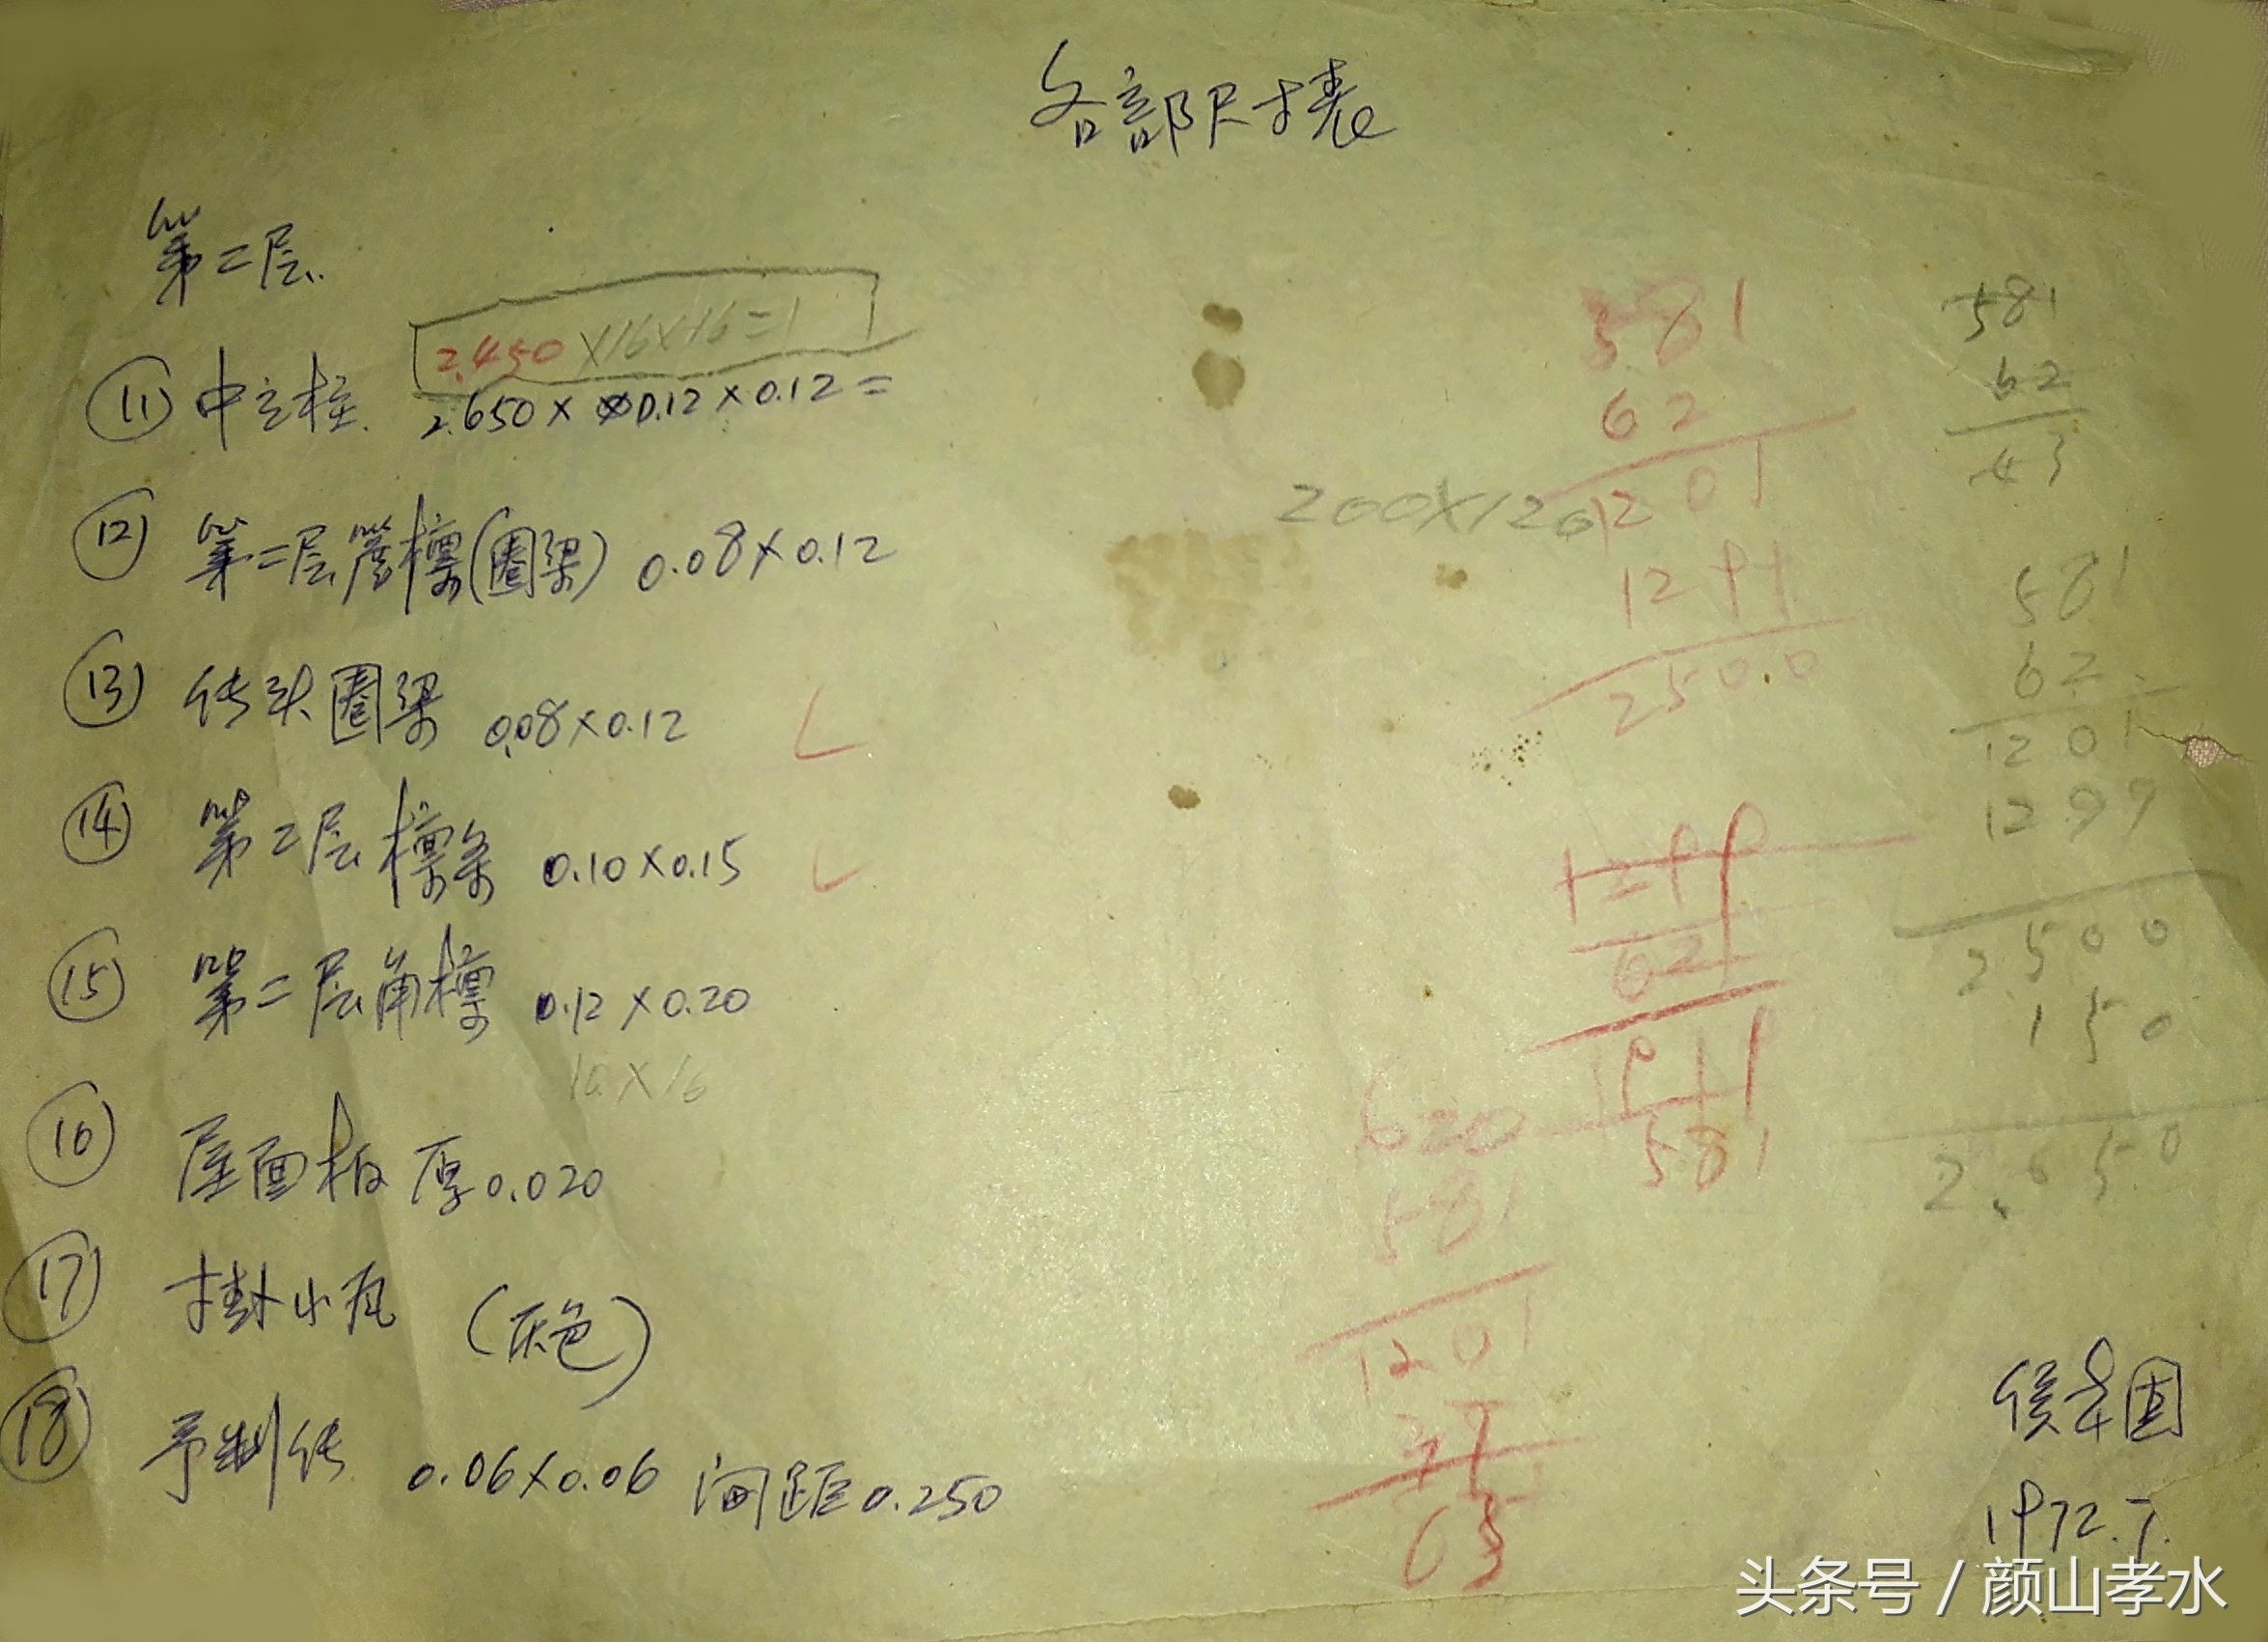 各部尺寸表
第二层
2.450×16×16=1
⑪ 中立柱 2.650×0.12×0.12=
⑫ 第二层簷檩(圈梁) 0.08×0.12
⑬ 传头圈梁 0.08×0.12
⑭ 第二层檩条 0.10×0.15
⑮ 第二层角檩 0.12×0.20
16×16
⑯ 屋面板 厚0.020
⑰ 挂小瓦 (灰色)
⑱ 予制传 0.06×0.06 间距0.250
200×120
581
62
1201
1299
250.0
1299
62
581
620
581
1201
63
581
62
43
581
62
1201
1299
2500
150
2.650
侯 固
1972.7.
头条号 / 颜山孝水